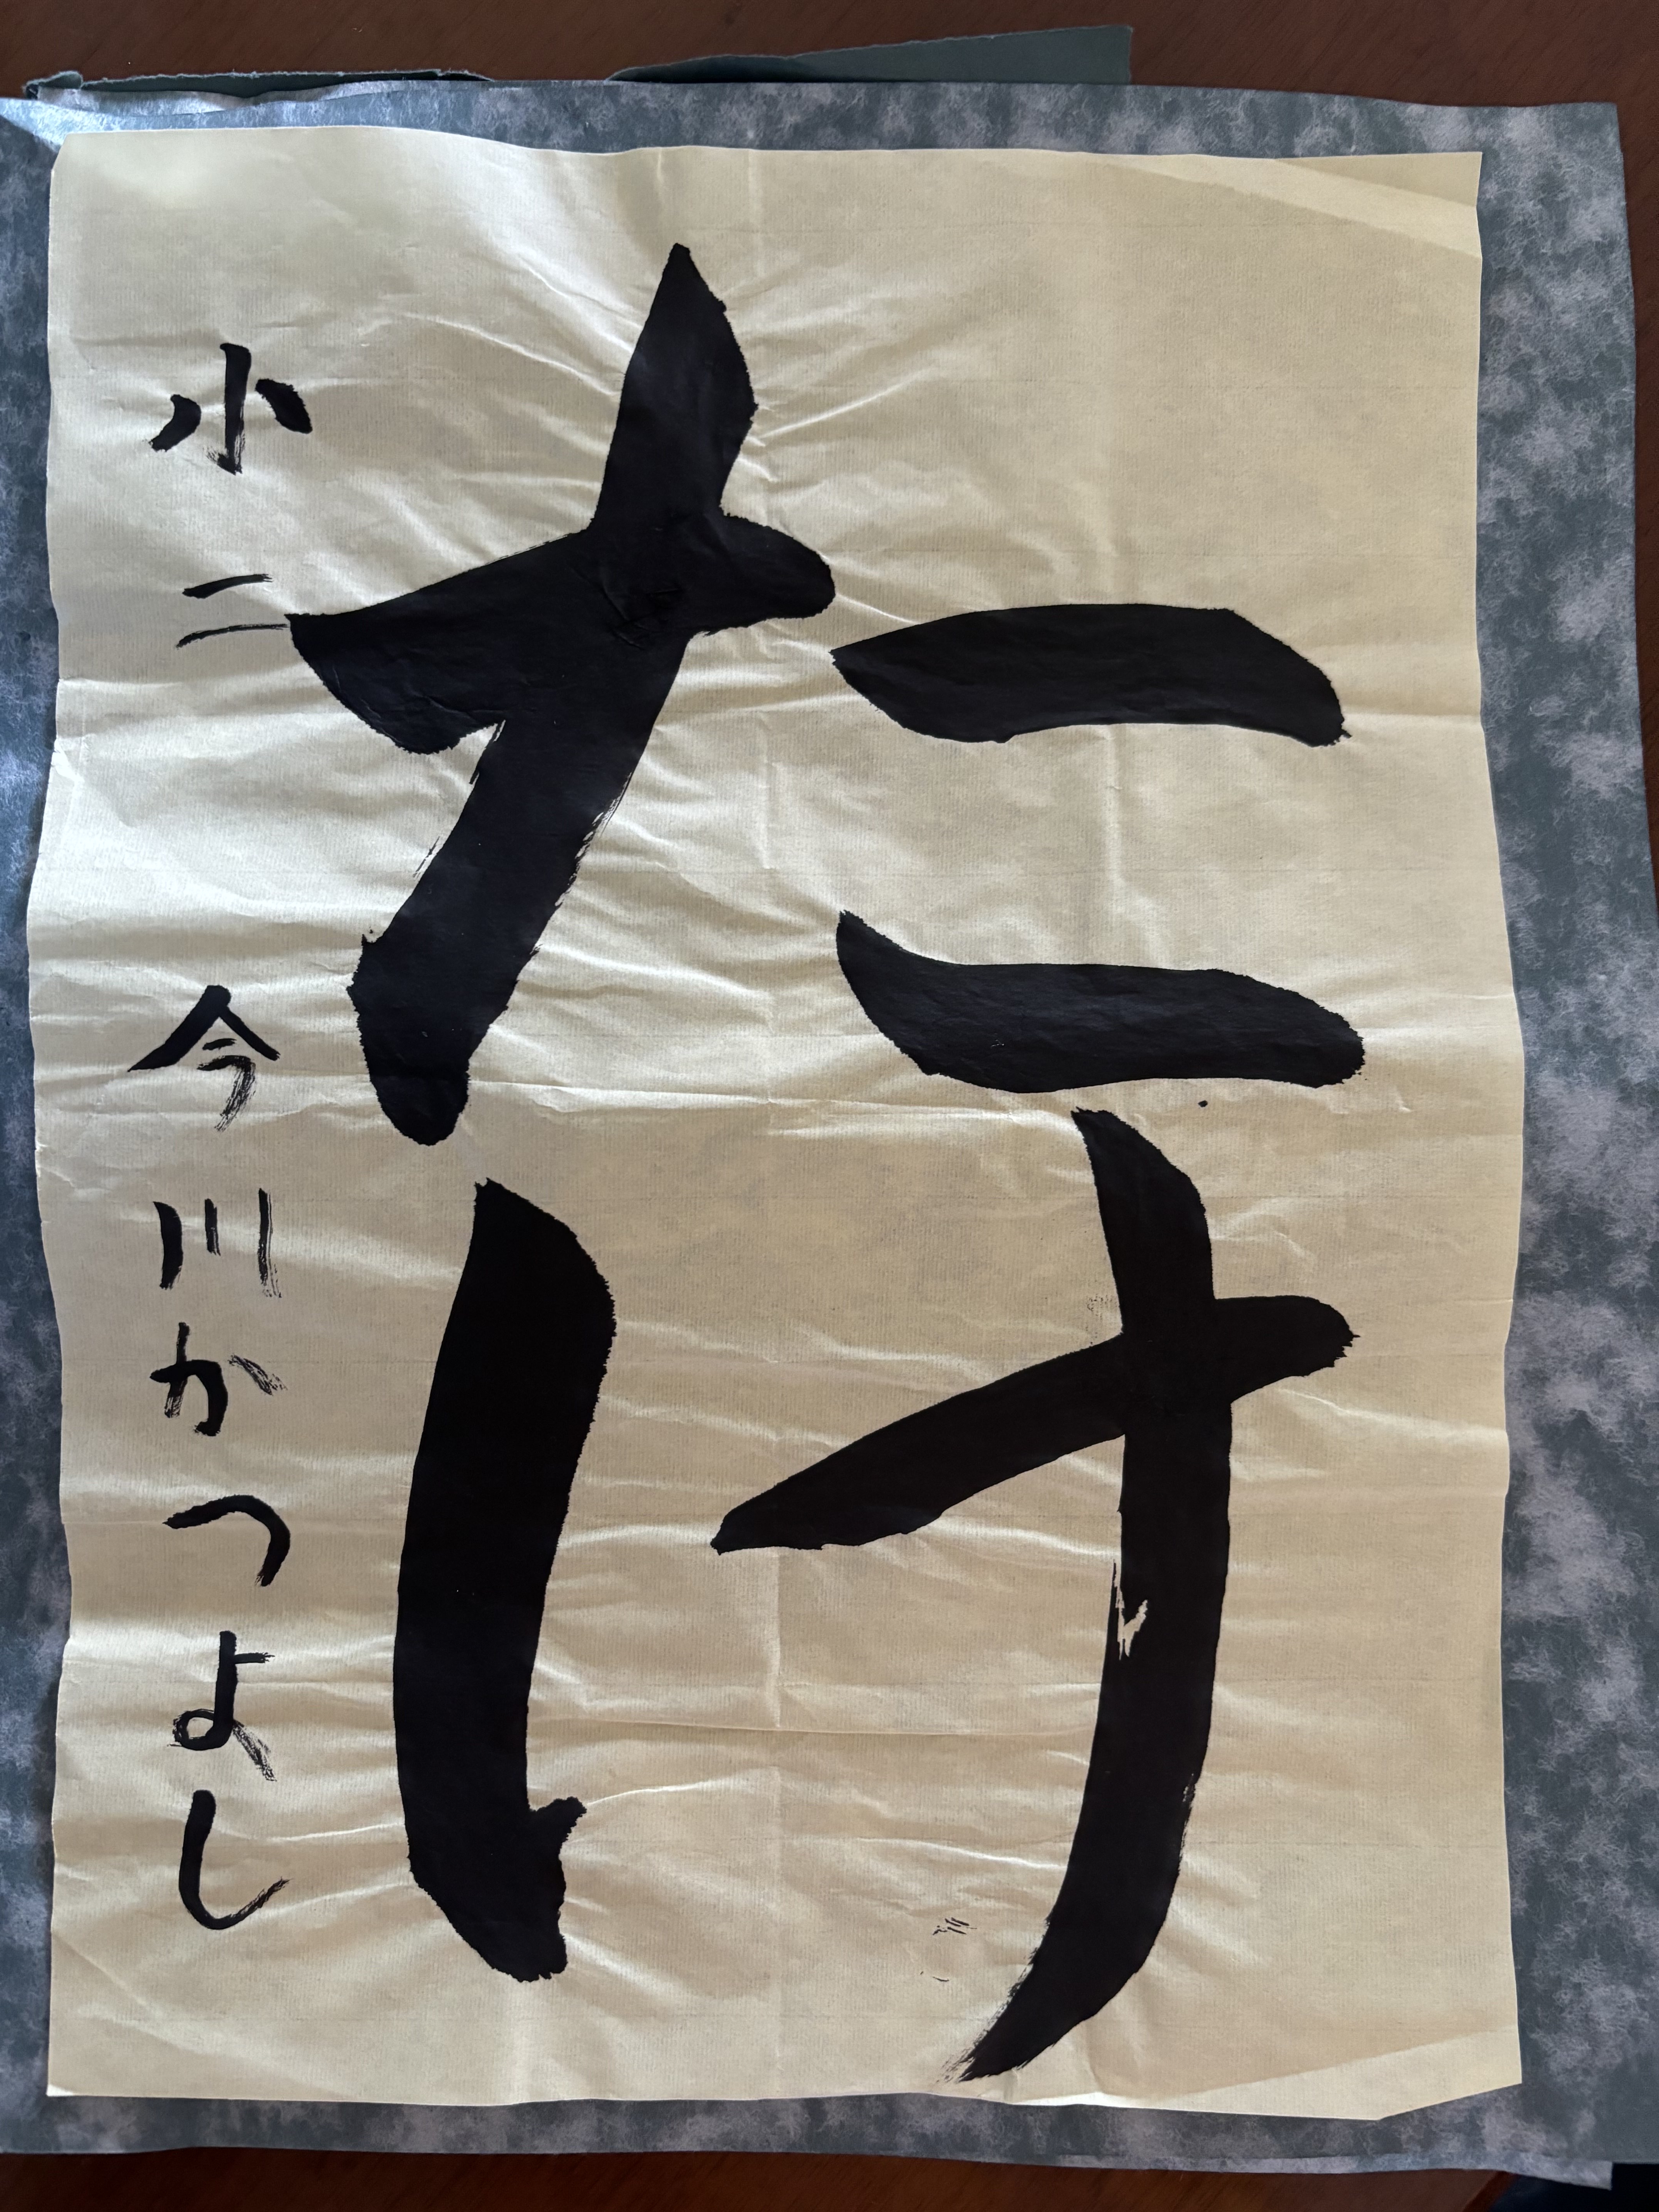 たけ
小二 今川かつよし